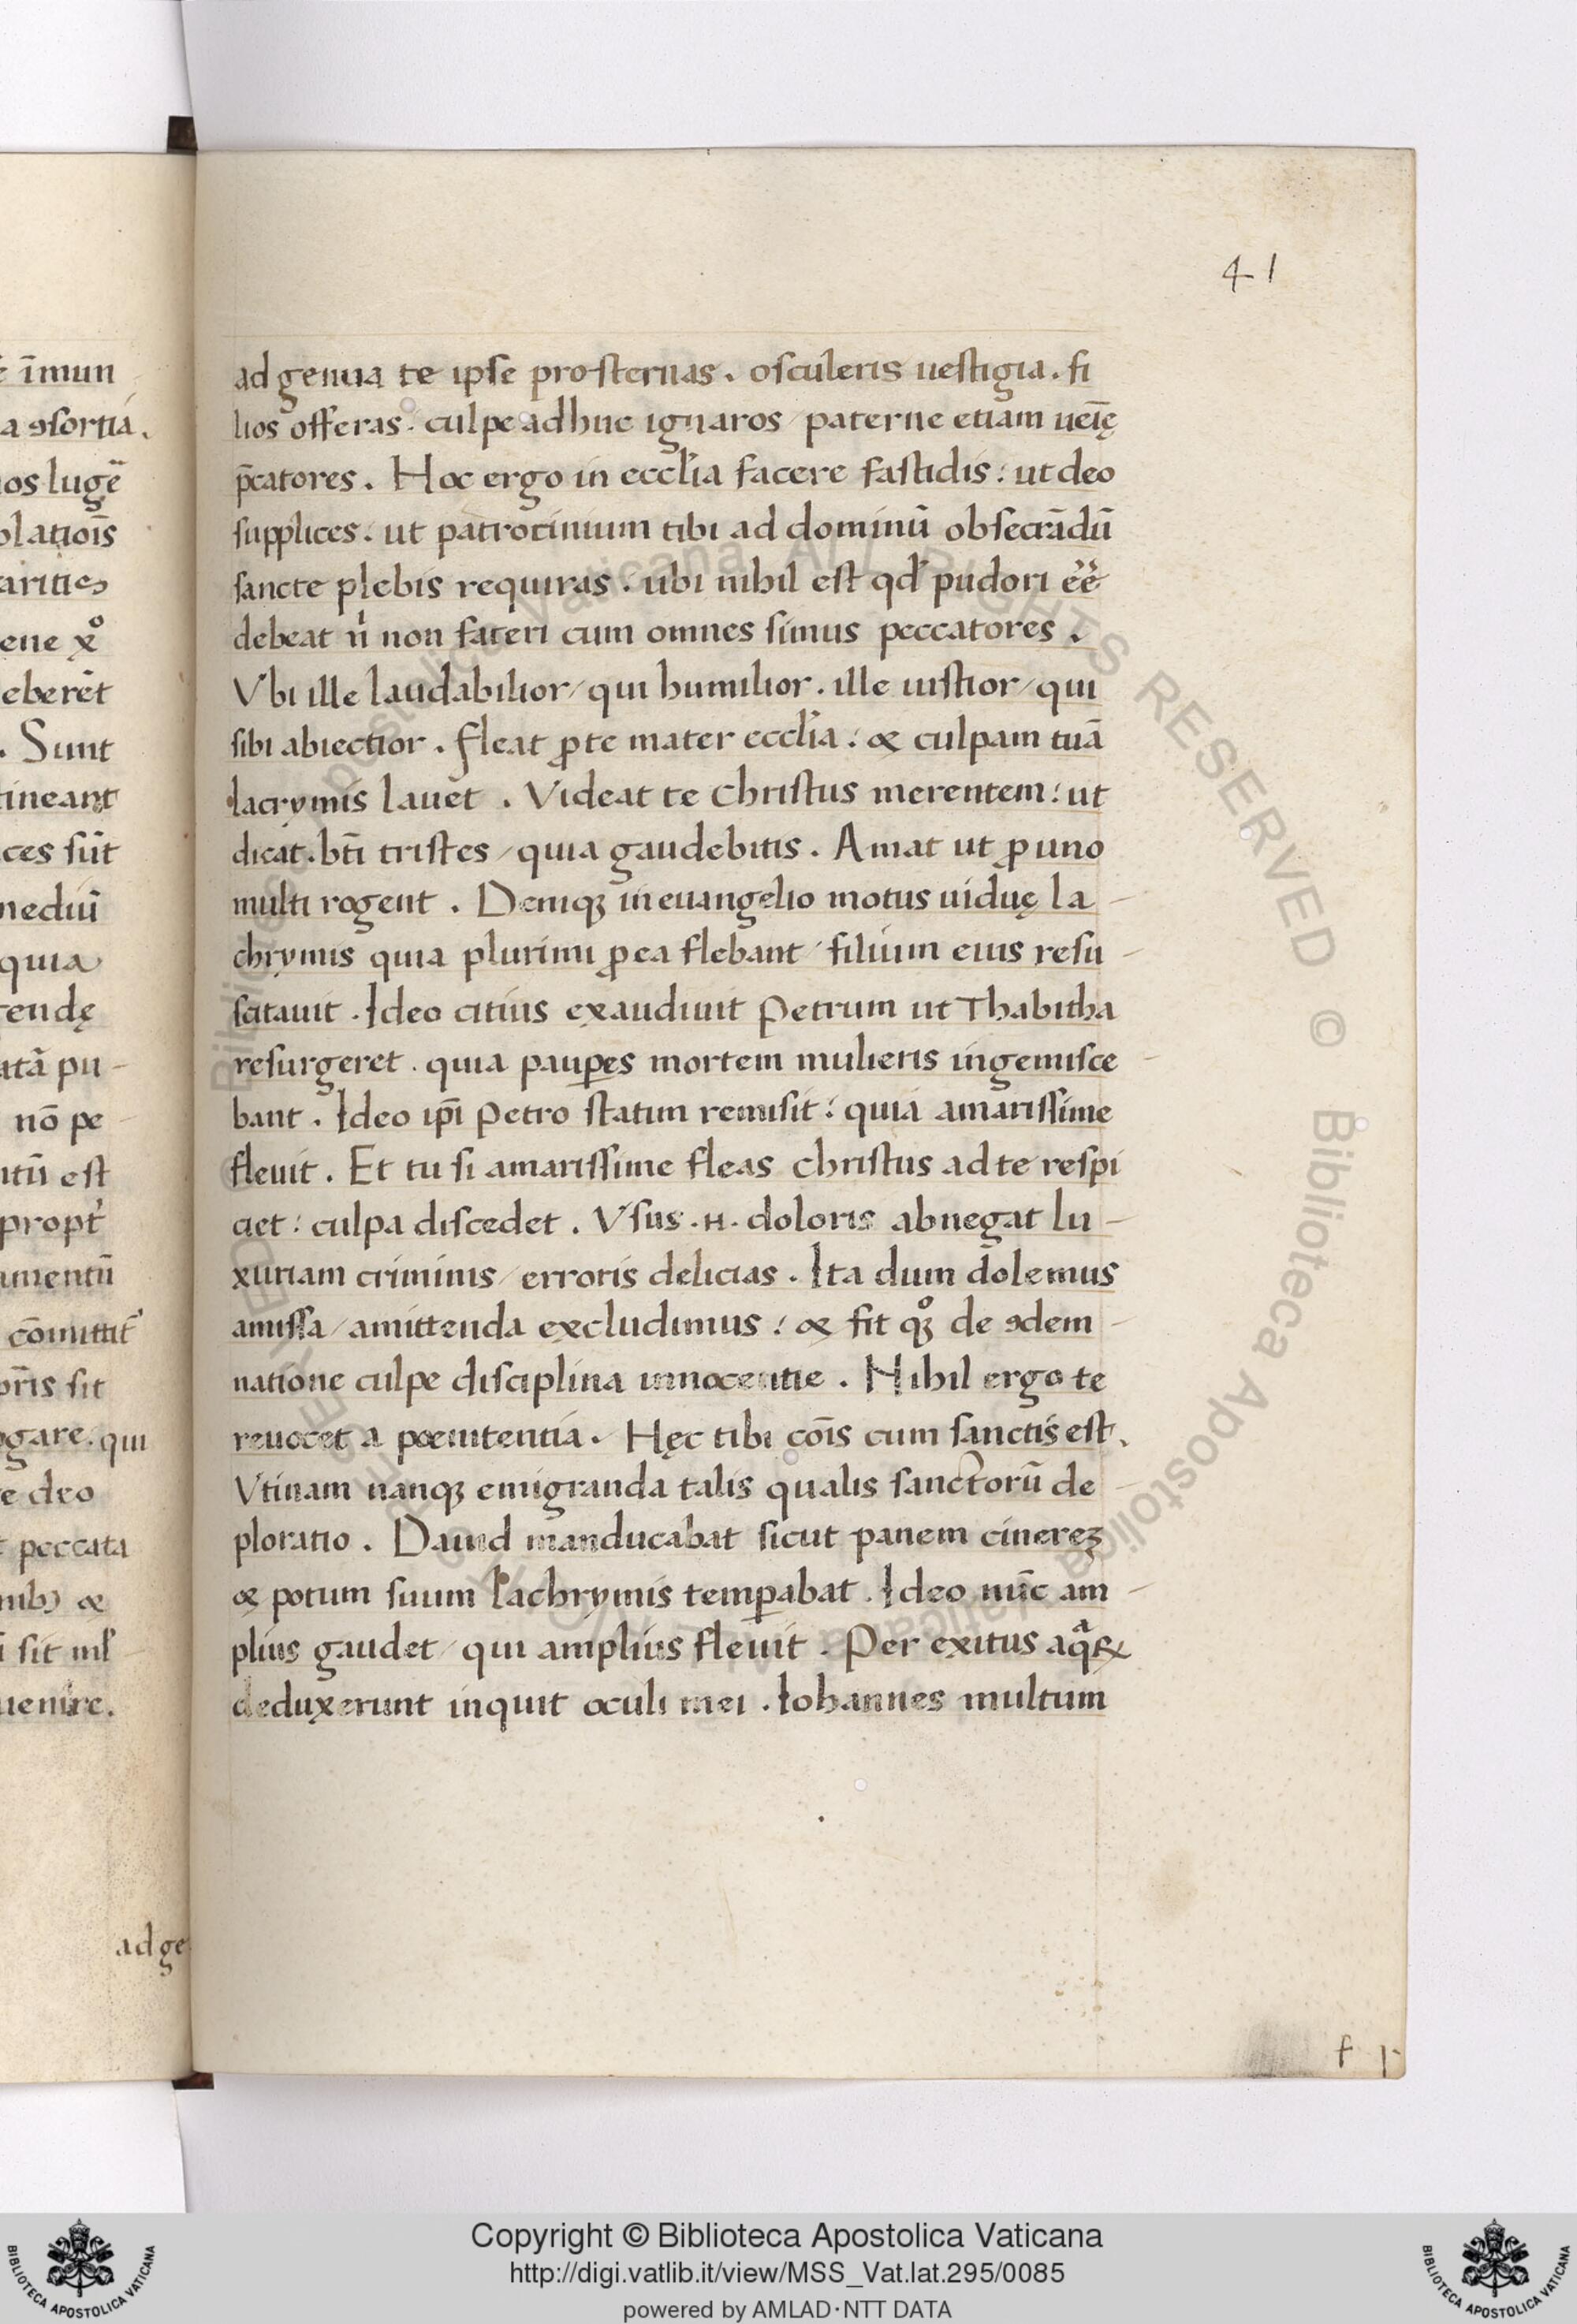 41
ad genua te ipse prosternas. osculeris uestigia. fi
lios offeras. culpe adhuc ignaros / paterne etiam ueīę
p̄catores. Hoc ergo in eccl̄ia facere fastidis: ut deo
supplices: ut patrocinium tibi ad dominū obsecrādū
sancte plebis requiras. ubi nihil est qd̓ pudori eē
debeat n̓ non fateri cum omnes simus peccatores.
Vbi ille laudabilior / qui humilior. ille iustior / qui
sibi abiectior. fleat ꝓ te mater eccl̄ia: & culpam tuā
lacrymis lauet. Videat te christus merentem: ut
dicat. bt̄i tristes / quia gaudebitis. Amat ut ꝓ uno
multi rogent. Deniqꝫ in euangelio motus uiduę la-
chrymis quia plurimi ꝓ ea flebant / filium eius resu-
scitauit. Ideo citius exaudiuit petrum ut Thabitha
resurgeret. quia pauꝑes mortem mulieris ingemisce-
bant. Ideo ip̄i petro statim remisit: quia amarissime
fleuit. Et tu si amarissime fleas christus ad te respi
ciet: culpa discedet. Vsus .H. doloris abnegat lu-
xuriam criminis / erroris delicias. Ita dum dolemus
amissa / amittenda excludimus: & fit qͦꝫ de ꝯdem-
natione culpe disciplina innocentie. Nihil ergo te
reuocet a poenitentia. Hęc tibi cōis cum sanctis est.
Vtinam nanqꝫ emigranda talis qualis sanctorū de-
ploratio. Dauid manducabat sicut panem cinereꝫ
& potum suum lachrymis temꝑabat. Ideo nūc am-
plius gaudet / qui amplius fleuit. Per exitus aqͣꝝ
deduxerunt inquit oculi mei. Iohannes multum
f 1
ad ge
Copyright © Biblioteca Apostolica Vaticana
http://digi.vatlib.it/view/MSS_Vat.lat.295/0085
powered by AMLAD·NTT DATA
BIBLIOTECA APOSTOLICA VATICANA
BIBLIOTECA APOSTOLICA VATICANA